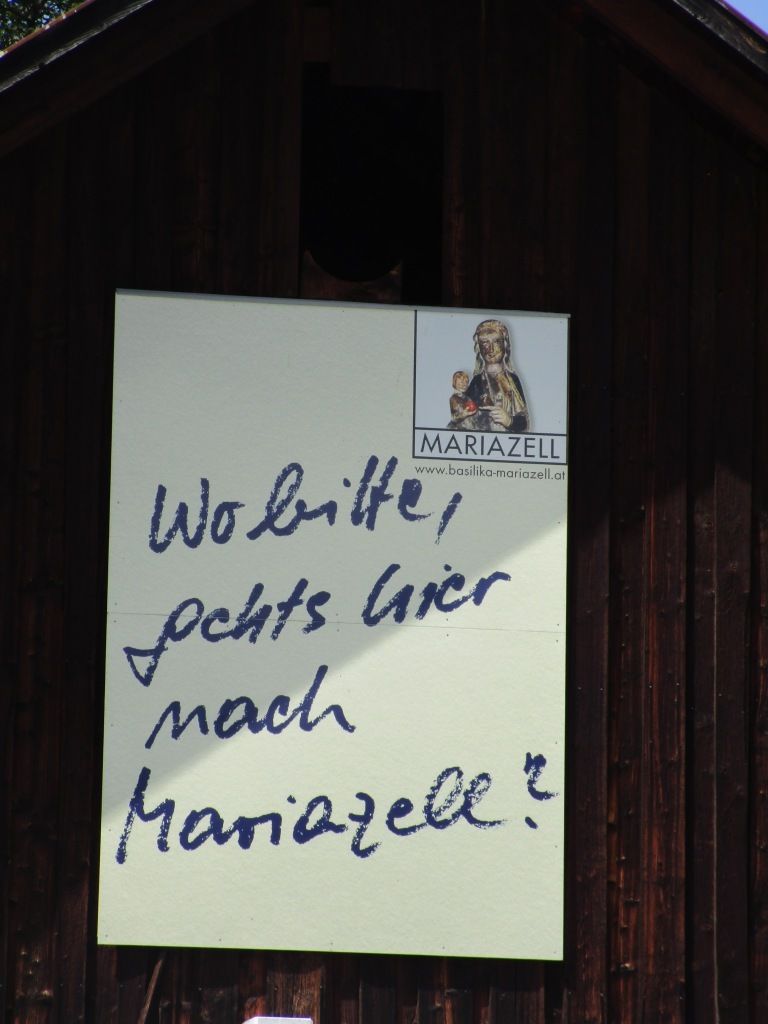 MARIAZELL
www.basilika-mariazell.at
Wo bitte,
gehts hier
nach
Mariazell?